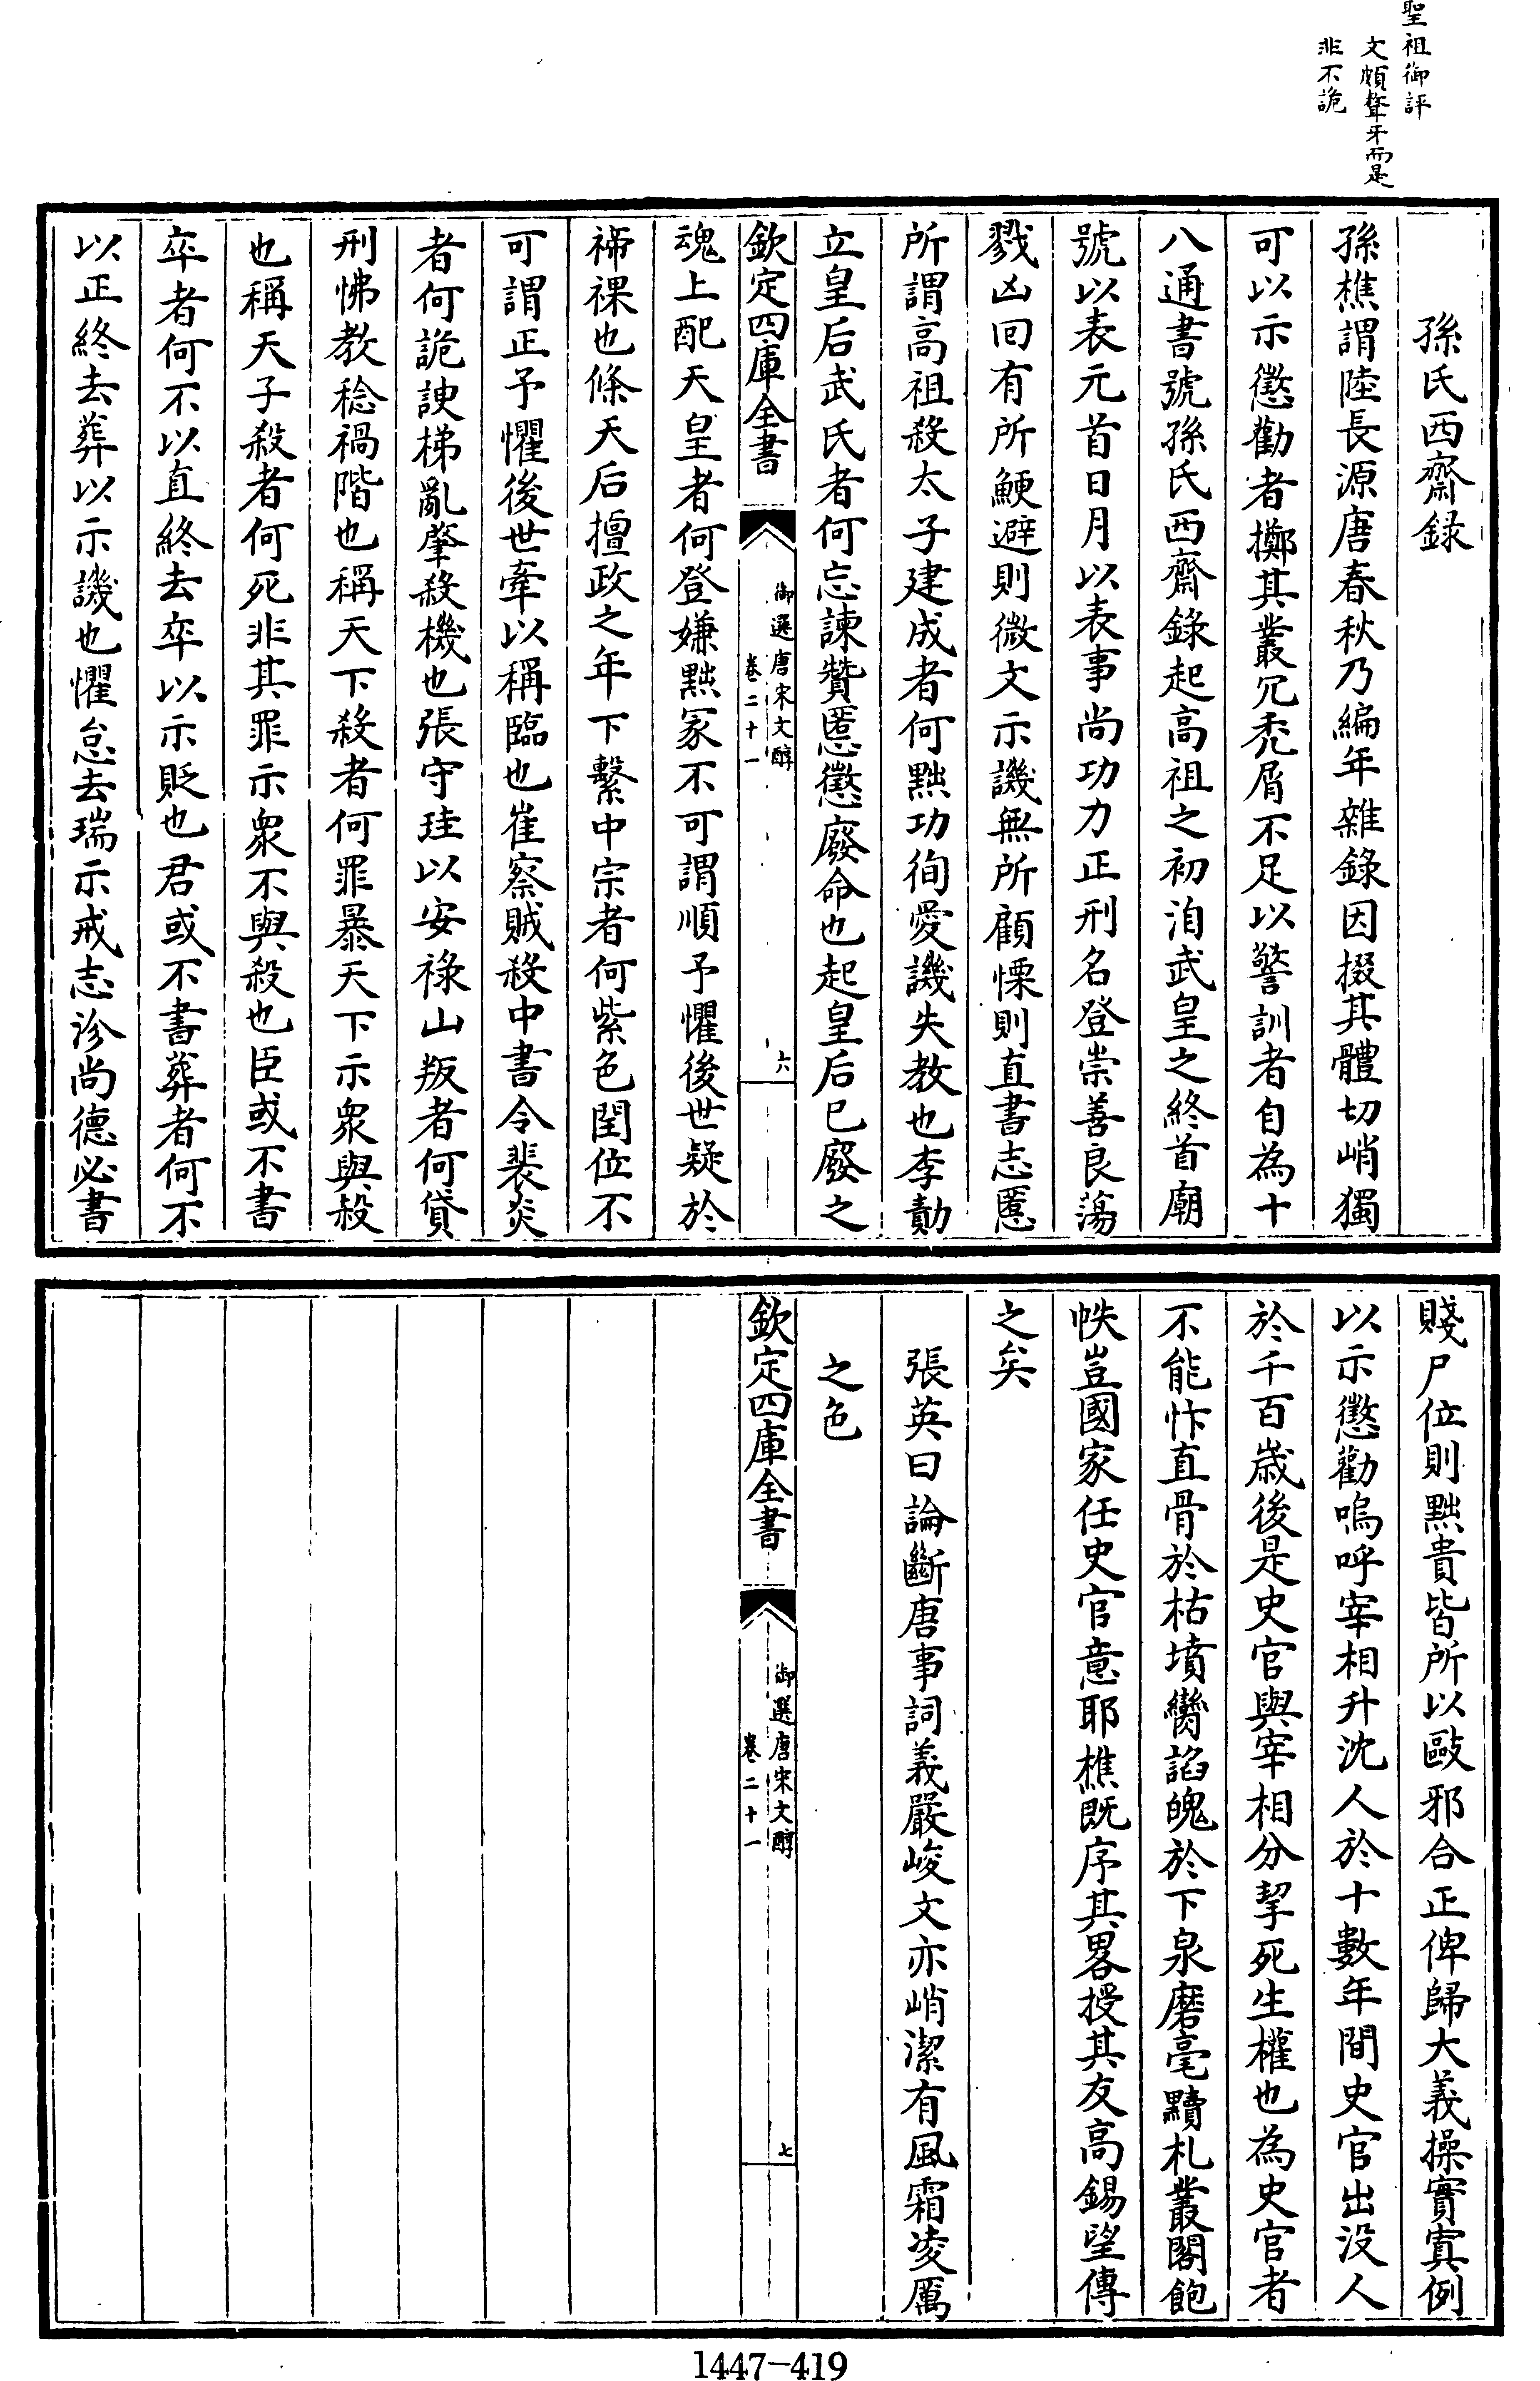 聖祖御評
文頗聱牙而是
非不詭
孫氏西齋録
孫樵謂陸長源唐春秋乃編年雜錄因掇其體切峭獨
可以示懲勸者擲其叢冗禿屑不足以警訓者自為十
八通書號孫氏西齋錄起高祖之初洎武皇之終首廟
號以表元首日月以表事尚功力正刑名登崇善良蕩
戮凶回有所鯁避則微文示譏無所顧慄則直書志慝
所謂高祖殺太子建成者何黜功徇愛譏失教也李勣
立皇后武氏者何忘諫贊慝懲廢命也起皇后已廢之
欽定四庫全書
御選唐宋文醇
卷二十一
六
魂上配天皇者何登嫌黜冢不可謂順予懼後世疑於
禘祼也條天后擅政之年下繫中宗者何紫色閏位不
可謂正予懼後世牽以稱臨也崔察賊殺中書令裴炎
者何詭諛梯亂肇殺機也張守珪以安祿山叛者何貸
刑怫教稔禍階也稱天下殺者何罪暴天下示衆與殺
也稱天子殺者何死非其罪示衆不與殺也臣或不書
卒者何不以直終去卒以示貶也君或不書葬者何不
以正終去葬以示譏也懼怠去瑞示戒志沴尚德必書
賤尸位則黜貴皆所以毆邪合正俾歸大義操實寘例
以示懲勸嗚呼宰相升沈人於十數年間史官出没人
於千百歲後是史官與宰相分挈死生權也為史官者
不能忭直骨於枯墳臠諂魄於下泉磨毫黷札叢閣飽
帙豈國家任史官意耶樵既序其畧授其友高錫望傳
之矣
張英曰論斷唐事詞義嚴峻文亦峭潔有風霜凌厲
之色
欽定四庫全書
御選唐宋文醇
卷二十一
七
1447-419